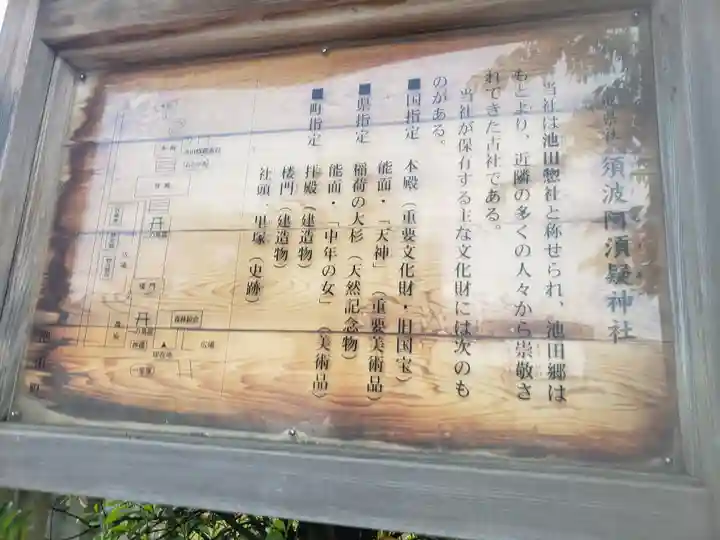 須波阿湏疑神社
当社は池田惣社と称せられ、池田郷は
もとより、近隣の多くの人々から崇敬さ
れてきた古社である。
当社が保有する主な文化財には次のも
のがある。
■国指定 本殿（重要文化財・旧国宝）
能面・「天神」（重要美術品）
■県指定 稲荷の大杉（天然記念物）
能面・「中年の女」（美術品）
■町指定 拝殿（建造物）
楼門（建造物）
社頭、里塚（史跡）
本殿
拝殿
広場
楼門
広場
現在地